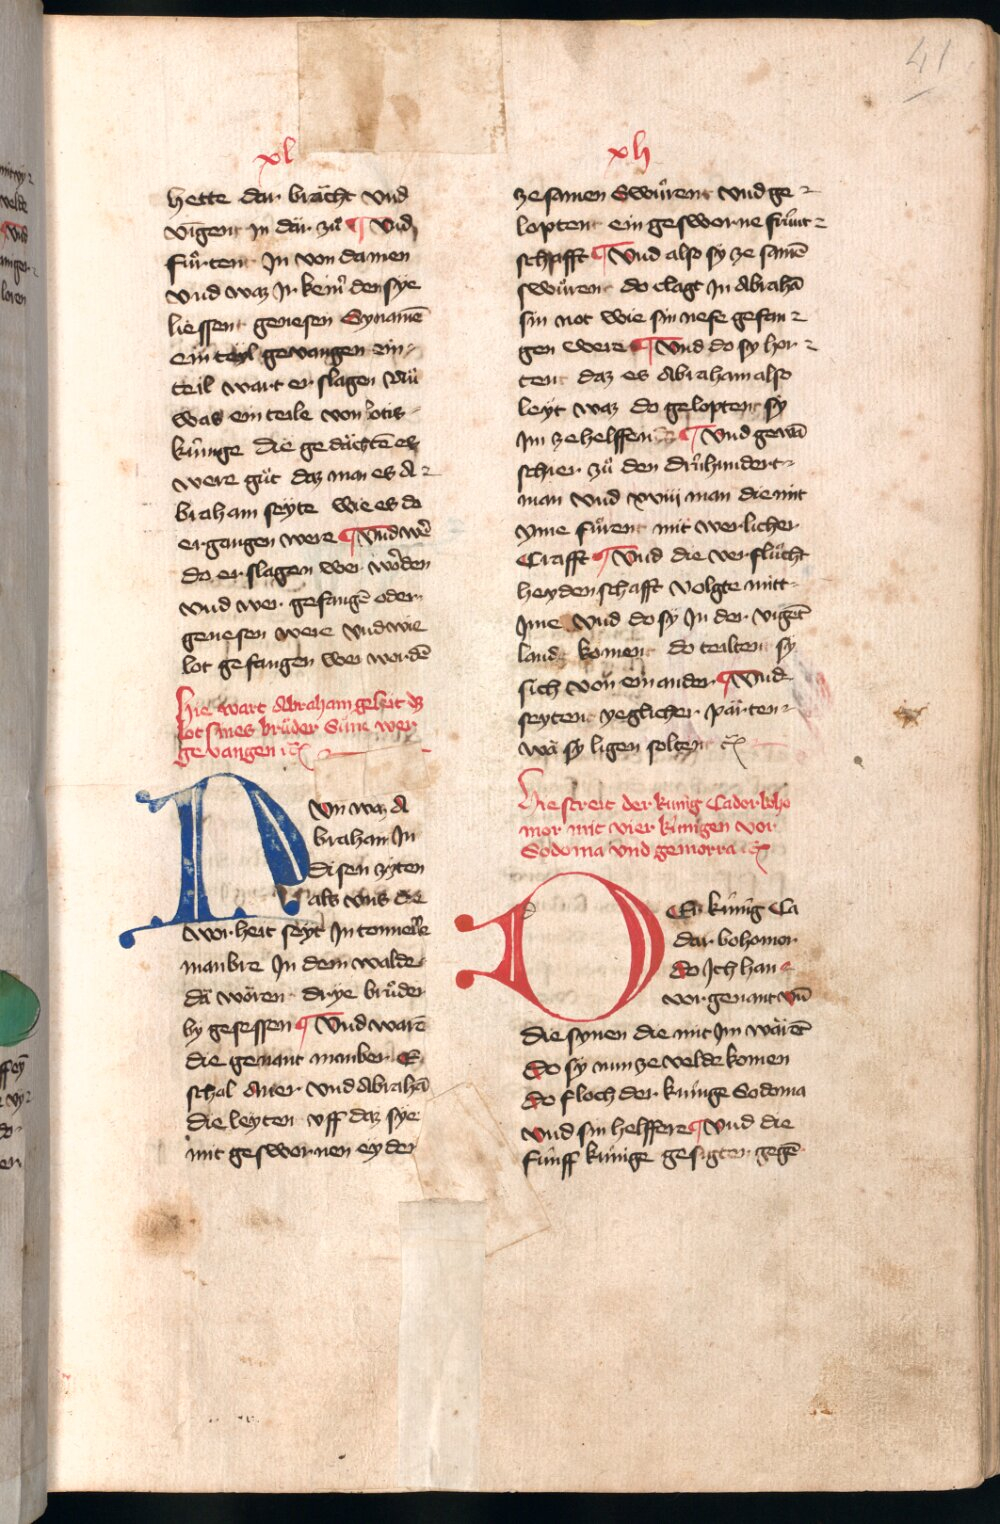 41
xl
hette dar brächt vnd
vigent Jn där zů ¶ Vnd
fůrtent Jn von dannen
vnd waz Jr kein̄ den sye
liessent genesen Synamē
ein teyl gevangen ein
teil wart er slagen Vn̄
was ein teile von lotis
kúnige die gedächtē es
were gůt daz man es A
braham seyte wie es da
ergangen were ¶ Vnd wē
do erslagen wer wōrden
vnd wer gefangē oder
genesen were vnd wie
lot gefangen wer wordē
Hie wart Abraham geseit dz
lot sines brůder Sune wer
gevangen ꝛc̄
NVn waz A
braham Jn
disen zyten
als vns die
worheit seyt Jn conuelle
manbre Jn dem walde
dä wären drye brůder
by gesessen ¶ Vnd warē
die genant manber E
schal Aner vnd Abrahā
die leyten vff daz sye
mit geswornen eyder
xli
ze samen Swůrent vnd ge
loptent ein gesworne frünt
schafft ¶ Vnd also sy ze samē
swůrent do clagt Jn Abrahā
sin not wie sin nefe gefan
gen were ¶ Vnd do sy hor
tent daz es Abraham also
leyt waz do geloptent sy
Jm ze helffen ¶ Vnd gewā
schier zů den drúhundert
man vnd xviij man die mit
yme fůrent mit werlicher
Crafft ¶ Vnd die verflůcht
heydenschafft volgte mitt
Jme Vnd do sy Jn der vigēt
land koment do teiltent sy
sich von ein ander ¶ Vnd
seytent yeglicher pärten
wä sy ligen soltent ꝛc̄
Hie streit der kunig Cador boho
mor mit vier kúnigen vor
Sodoma vnd gemorra ꝛc̄
DEr kúnig Ca
dar bohomor
do Jch han
vor genant vn̄
die synen die mit Jm wärēt
do sy nun ze velde komen
do floch der kunige Sodoma
vnd sin helffere ¶ Vnd die
fúnff kúnige gesigten gegē